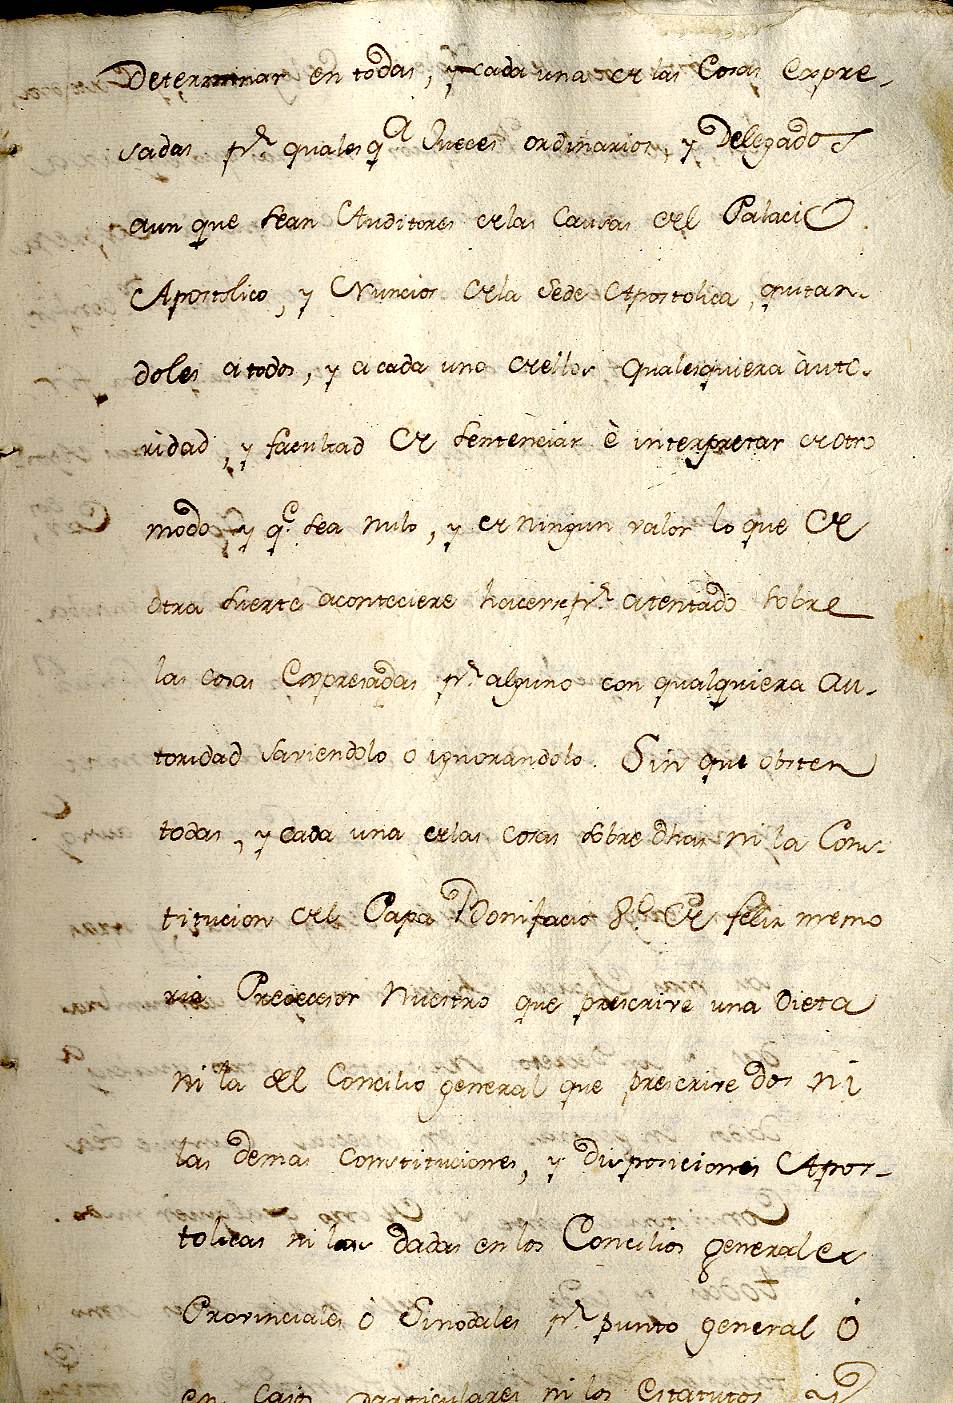 Determinar en todas, y cada una de las Cosas Expre-
sadas pr. qualesqa Jueces ordinarios, y Delegados
aun que sean Auditores de las Causas del Palacio
Apostolico, y Nuncios de la Sede Apostolica, quitan-
doles a todos, y a cada uno de ellos qualesquiera auto-
ridad, y facultad de sentenciar è interpretar de otro
modo y qe. sea nulo, y de ningun valor lo que de
otra suerte aconteciere hacerse pr. atentado sobre
las cosas Expresadas pr. alguno con qualquiera au-
toridad saviendolo o ignorandolo. Sin que obsten
todas, y cada una de las cosas sobre dhas ni la Cons-
titucion del Papa Bonifacio 8o. de feliz memo
ria Predecesor Nuestro que prescrive una Dieta
ni la del Concilio general que prescrive dos ni
las demas Constituciones, y disposiciones Apos-
tolicas ni las dadas en los Concilios generales
Provinciales ò Sinodales pr. punto general ò
en casos particulares ni los Estatutos